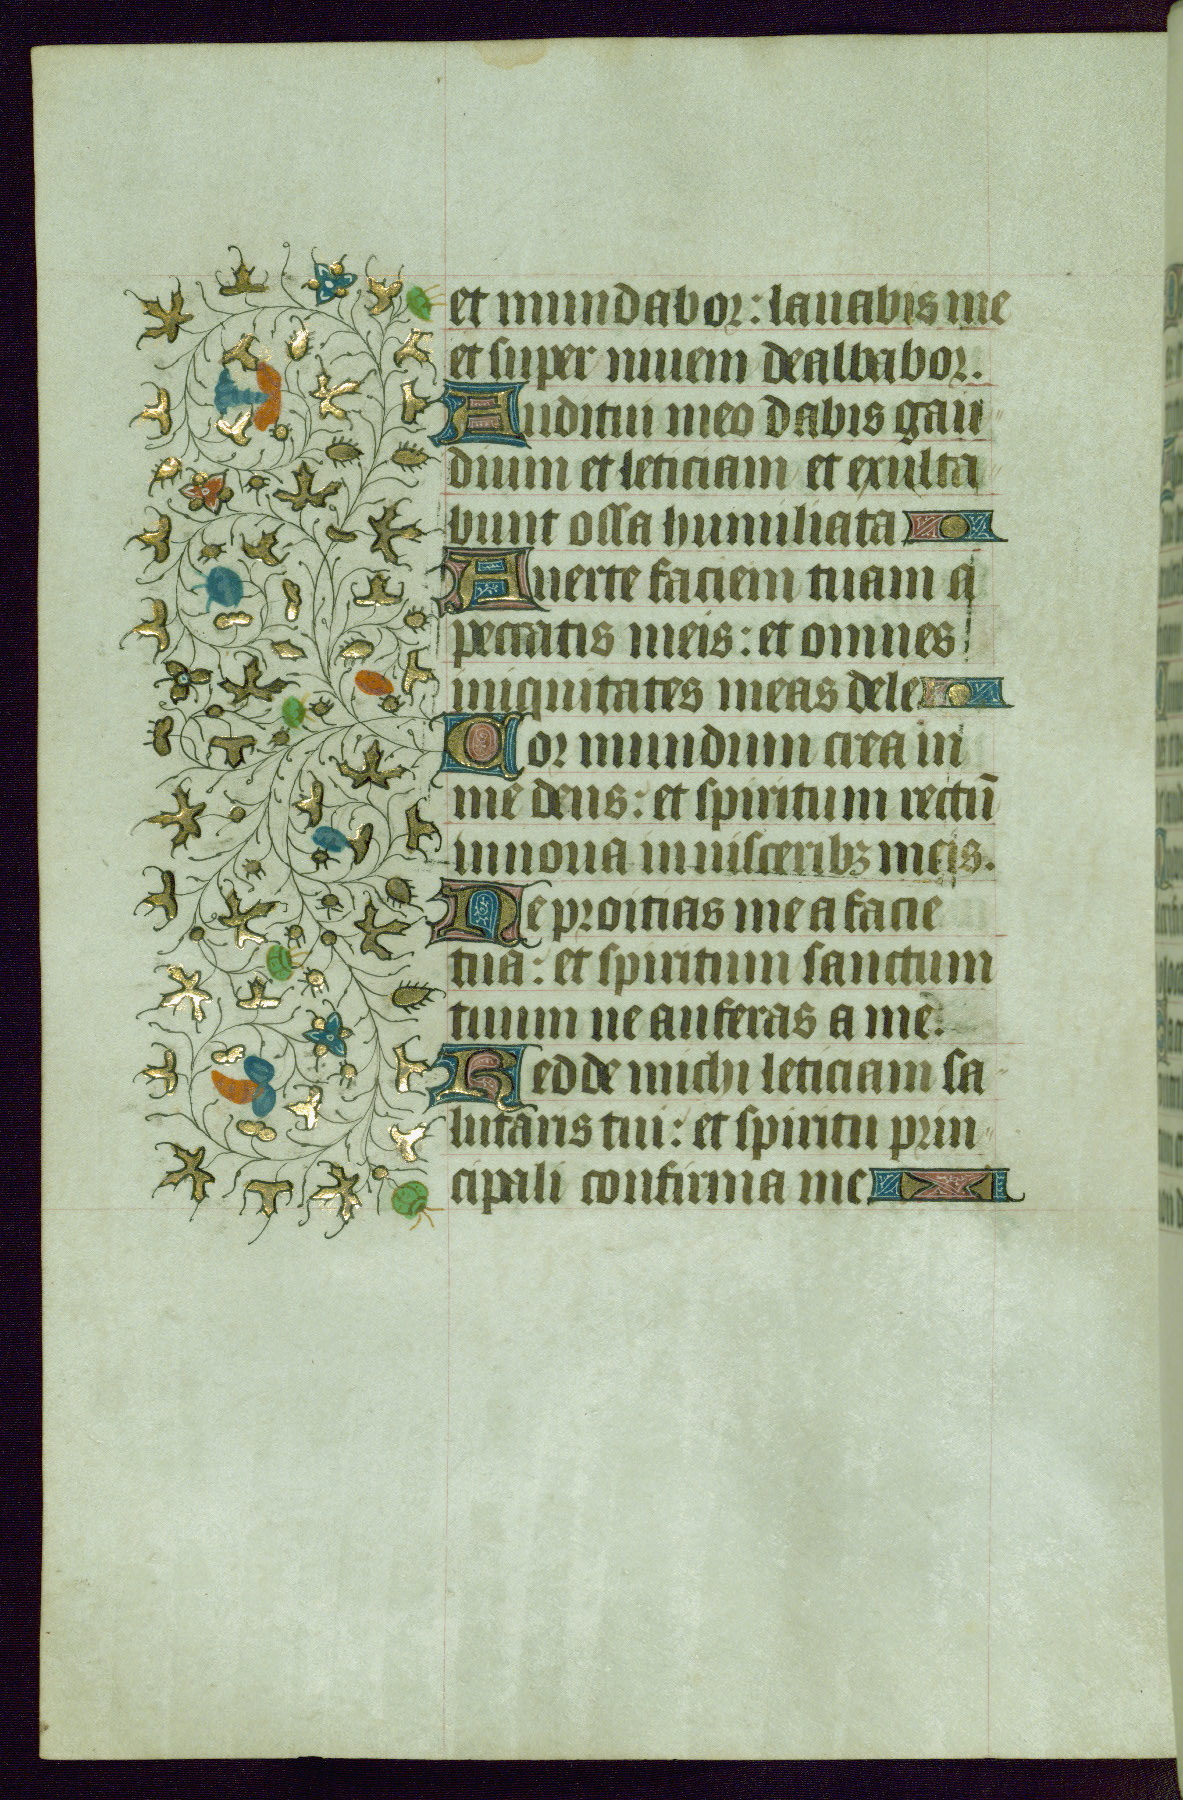 et mundabor: lauabis me
et super niuem dealbabor.
Auditui meo dabis gau
dium et leticiam et exulta
bunt ossa humiliata
Auerte faciem tuam a
peccatis meis: et omnes
iniquitates meas dele
Cor mundum crea in
me deus: et spiritum rectū
innoua in uisceribꝫ meis.
Ne proicias me a facie
tua: et spiritum sanctum
tuum ne auferas a me.
Redde michi leticiam sa
lutaris tui: et spiritu prin
cipali confirma me